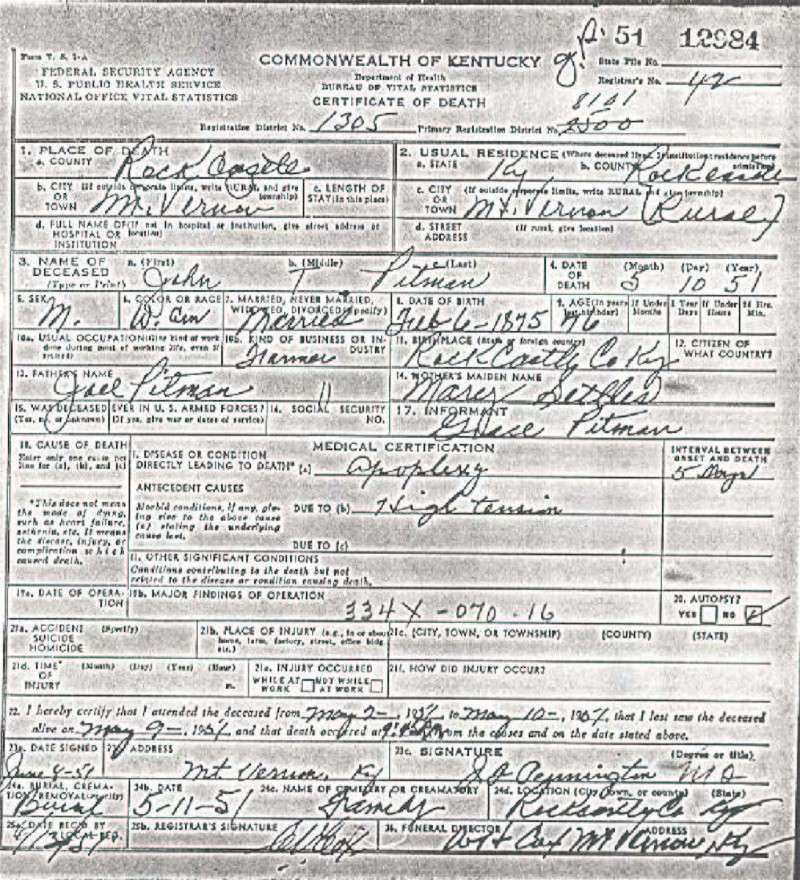 51 12984
Form V. S. 1-A
COMMONWEALTH OF KENTUCKY
State File No.
FEDERAL SECURITY AGENCY
Department of Health
Registrar's No. 42
U. S. PUBLIC HEALTH SERVICE
BUREAU OF VITAL STATISTICS
NATIONAL OFFICE VITAL STATISTICS
CERTIFICATE OF DEATH
8101
Registration District No. 1305 Primary Registration District No. 2500
1. PLACE OF DEATH
2. USUAL RESIDENCE (Where deceased lived. If institution: residence before admission)
a. COUNTY Rock Castle
a. STATE Ky b. COUNTY Rockcastle
b. CITY (If outside corporate limits, write RURAL and give township) OR TOWN Mt. Vernon
c. LENGTH OF STAY (in this place)
c. CITY (If outside corporate limits, write RURAL and give township) OR TOWN Mt. Vernon (Rural)
d. FULL NAME OF (If not in hospital or institution, give street address or location) HOSPITAL OR INSTITUTION
d. STREET ADDRESS (If rural, give location)
3. NAME OF DECEASED (Type or Print) a. (First) John b. (Middle) T c. (Last) Pitman
4. DATE OF DEATH (Month) 5 (Day) 10 (Year) 51
5. SEX M. 6. COLOR OR RACE W. 7. MARRIED, NEVER MARRIED, WIDOWED, DIVORCED (Specify) Married
8. DATE OF BIRTH Feb 6-1875 9. AGE (In years last birthday) 76 If Under 1 Year Months Days If Under 24 Hrs. Hours Min.
10a. USUAL OCCUPATION (Give kind of work done during most of working life, even if retired)
10b. KIND OF BUSINESS OR INDUSTRY Farmer
11. BIRTHPLACE (State or foreign country) Rock Castly Co Ky
12. CITIZEN OF WHAT COUNTRY?
13. FATHER'S NAME Joel Pitman
14. MOTHER'S MAIDEN NAME Marey Settles
15. WAS DECEASED EVER IN U. S. ARMED FORCES? (Yes, no, or unknown) (If yes, give war or dates of service)
16. SOCIAL SECURITY NO.
17. INFORMANT Grace Pitman
18. CAUSE OF DEATH
MEDICAL CERTIFICATION
INTERVAL BETWEEN ONSET AND DEATH
Enter only one cause per line for (a), (b), and (c)
I. DISEASE OR CONDITION DIRECTLY LEADING TO DEATH* (a) apoplexy
5 Days
*This does not mean the mode of dying, such as heart failure, asthenia, etc. It means the disease, injury, or complication which caused death.
ANTECEDENT CAUSES
Morbid conditions, if any, giving rise to the above cause (a) stating the underlying cause last.
DUE TO (b) High tension
DUE TO (c)
II. OTHER SIGNIFICANT CONDITIONS
Conditions contributing to the death but not related to the disease or condition causing death.
19a. DATE OF OPERATION
19b. MAJOR FINDINGS OF OPERATION
334X-070-16
20. AUTOPSY? YES NO
21a. ACCIDENT SUICIDE HOMICIDE (Specify)
21b. PLACE OF INJURY (e.g., in or about home, farm, factory, street, office bldg. etc.)
21c. (CITY, TOWN, OR TOWNSHIP) (COUNTY) (STATE)
21d. TIME OF INJURY (Month) (Day) (Year) (Hour) m.
21e. INJURY OCCURRED WHILE AT WORK NOT WHILE AT WORK
21f. HOW DID INJURY OCCUR?
22. I hereby certify that I attended the deceased from May 2-, 1951, to May 10-, 1951, that I last saw the deceased
alive on May 9-, 1951 and that death occurred at m., from the causes and on the date stated above.
23a. DATE SIGNED June 4-51
23b. ADDRESS Mt Vernon, Ky
23c. SIGNATURE (Degree or title) Pennington MD
24a. BURIAL, CREMATION, REMOVAL (Specify) Burial
24b. DATE 5-11-51
24c. NAME OF CEMETERY OR CREMATORY
24d. LOCATION (City, town, or county) (State) Rockcastly Co Ky
25a. DATE REC'D BY LOCAL REG.
25b. REGISTRAR'S SIGNATURE
26. FUNERAL DIRECTOR ADDRESS WH Cox Mt Vernon, Ky